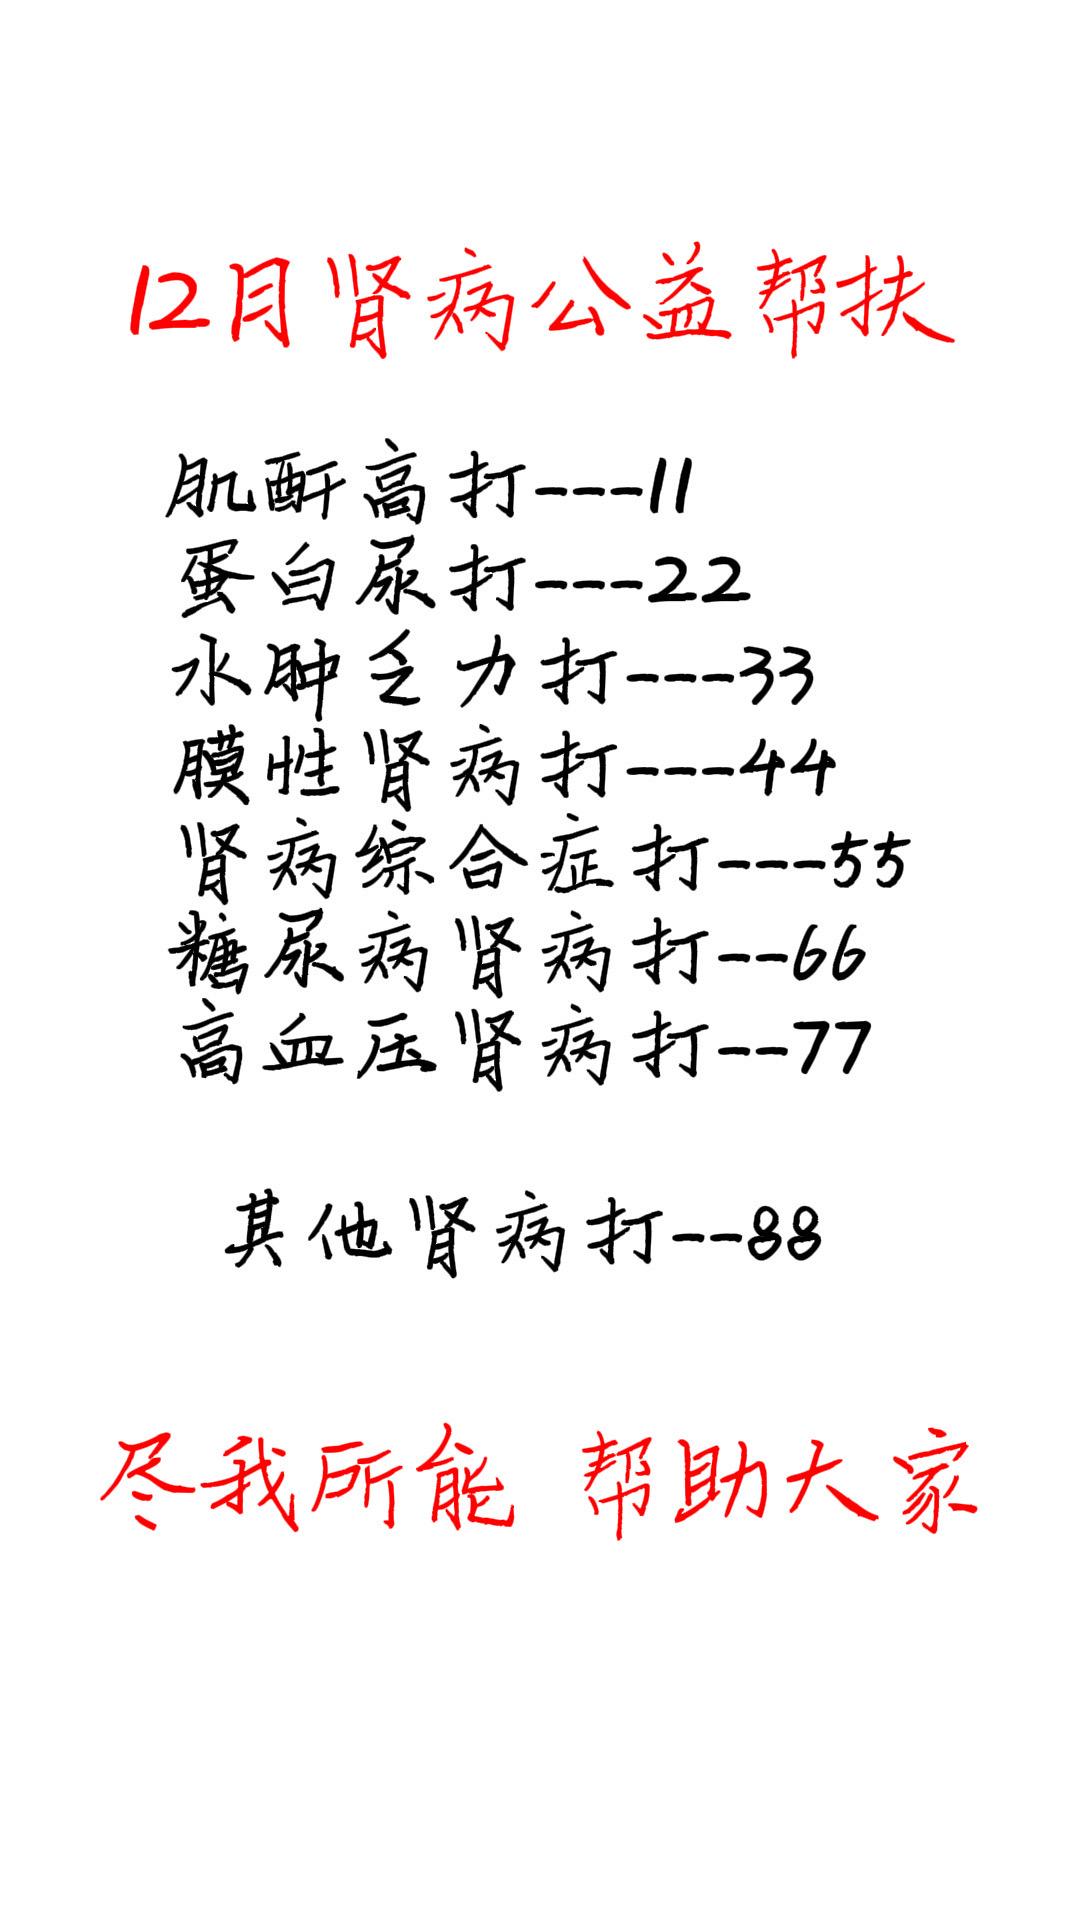 12月肾病公益帮扶
肌酐高打---11
蛋白尿打---22
水肿乏力打---33
膜性肾病打---44
肾病综合症打---55
糖尿病肾病打--66
高血压肾病打--77
其他肾病打--88
尽我所能 帮助大家